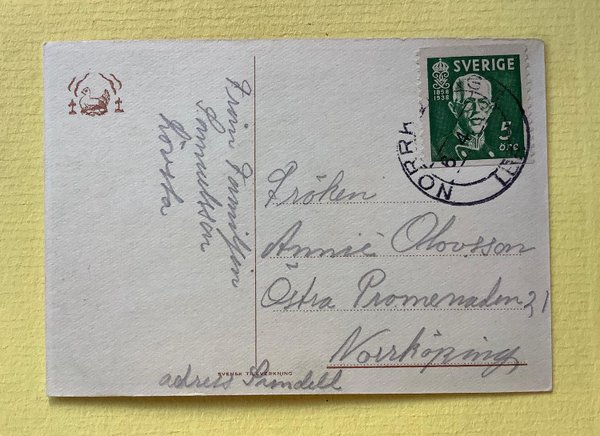 SVERIGE
1858
1938
5
öre
NORRK
Från Familjen
Samuelsson
Fröken
Annie Olovsson
Östra Promenaden 21
Norrköping
SVENSK TILLVERKNING
adress Sandell